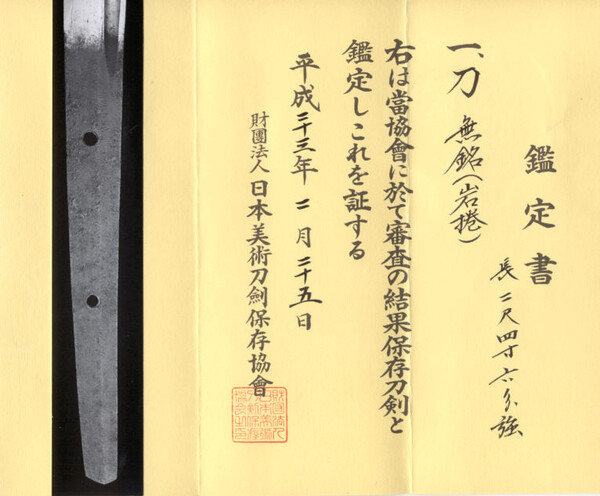 鑑定書
一、刀 無銘(岩捲)
長二尺四寸六分強
右は當協會に於て審査の結果保存刀剣と
鑑定しこれを証する
平成二十三年二月二十五日
財團法人日本美術刀劍保存協會